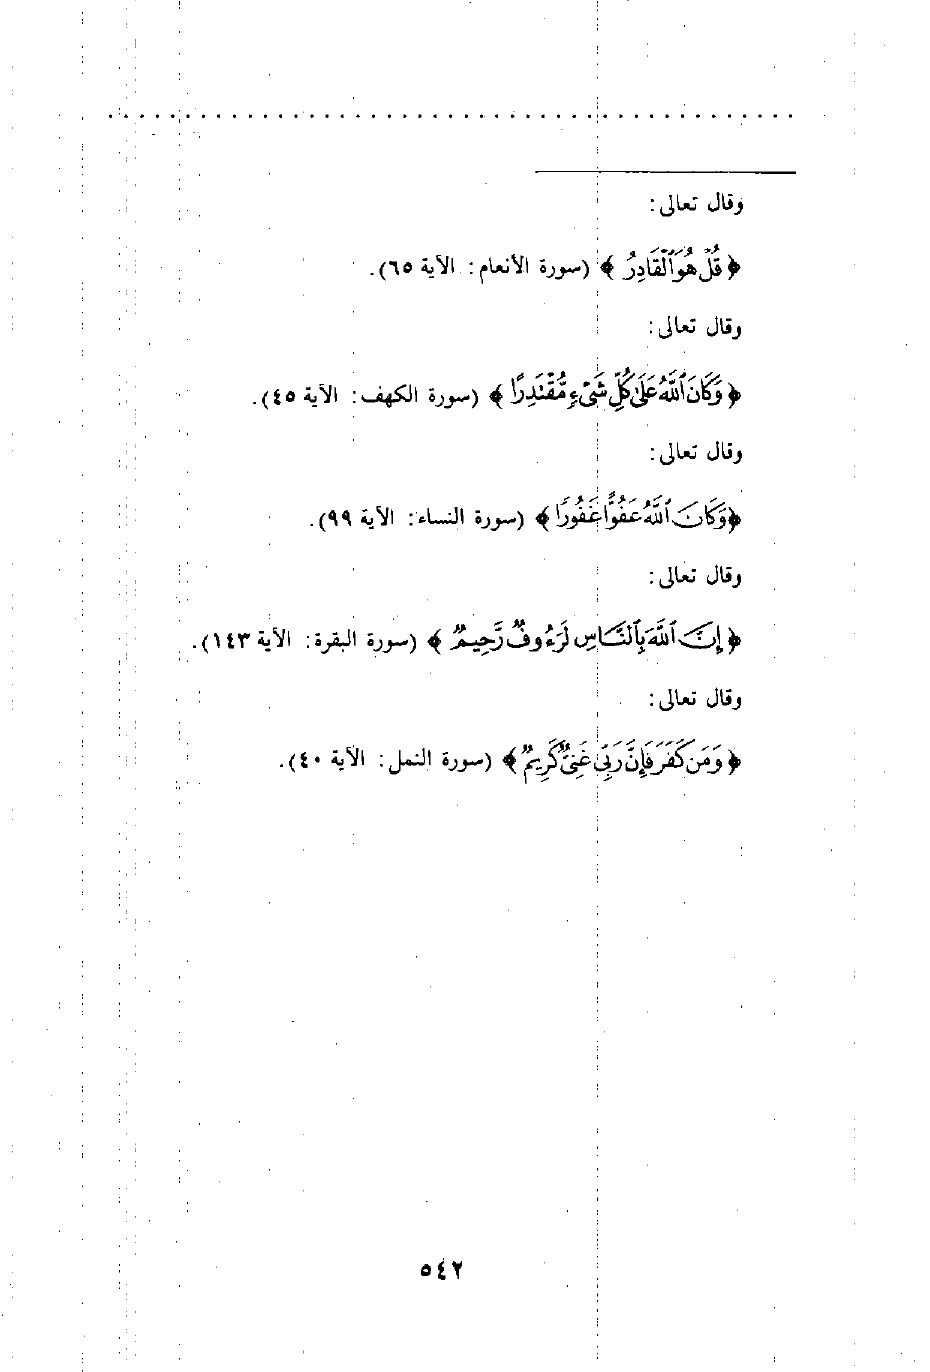 وقال تعالى:
﴿ قُلْ هُوَ ٱلْقَادِرُ ﴾ (سورة الأنعام: الآية ٦٥).
وقال تعالى:
﴿ وَكَانَ ٱللَّهُ عَلَىٰ كُلِّ شَىْءٍ مُّقْتَدِرًا ﴾ (سورة الكهف: الآية ٤٥).
وقال تعالى:
﴿وَكَانَ ٱللَّهُ عَفُوًّا غَفُورًا ﴾ (سورة النساء: الآية ٩٩).
وقال تعالى:
﴿ إِنَّ ٱللَّهَ بِٱلنَّاسِ لَرَءُوفٌ رَّحِيمٌ ﴾ (سورة البقرة: الآية ١٤٣).
وقال تعالى:
﴿ وَمَن كَفَرَ فَإِنَّ رَبِّى غَنِىٌّ كَرِيمٌ ﴾ (سورة النمل: الآية ٤٠).
٥٤٢